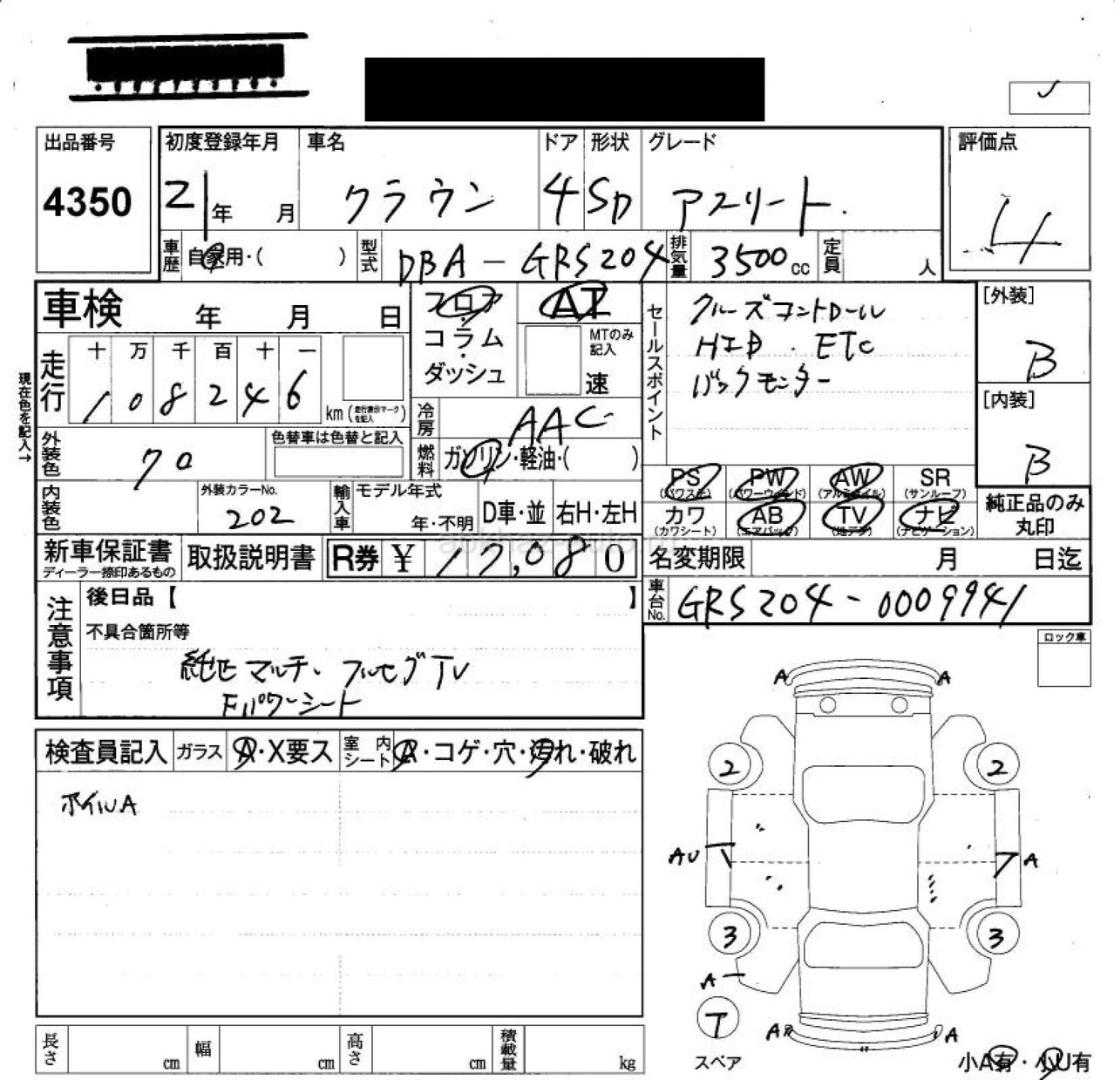 出品番号
4350
初度登録年月 車名 ドア 形状 グレード
21年 月 クラウン 4 SD アスリート.
評価点
4
車歴 自家用・( ) 型式 DBA-GRS204 排気量 3500cc 定員 人
車検 年 月 日
走行 十 万 千 百 十 一
108246 km (走行表示マークを記入)
現在色を記入→
外装色 クロ 色替車は色替と記入
内装色 外装カラーNo. 202
輸入車 モデル年式 年・不明 D車・並 右H・左H
フロア・コラム・ダッシュ
AT
MTのみ記入 速
冷房 AAC
燃料 ガソリン・軽油・( )
セールスポイント
クルーズコントロール
HID . ETC
バックモニター
[外装]
B
[内装]
B
PS (パワステ) PW (パワーウインド) AW (アルミホイル) SR (サンルーフ)
カワ (カワシート) AB (エアバッグ) TV (地デジ) ナビ (ナビゲーション)
純正品のみ丸印
新車保証書 ディーラー捺印あるもの 取扱説明書 R券 ¥ 17,080
名変期限 月 日迄
車台No. GRS204-0009941
注意事項
後日品【 】
不具合箇所等
純正マルチ、フルセグTV
Fパワーシート
ロック車
検査員記入 ガラス A・X要ス 室内シート A・コゲ・穴・汚れ・破れ
ホイルA
A A
2 2
AU A
3 3
A
T
スペア
A A
小A有・小U有
長さ cm 幅 cm 高さ cm 積載量 kg